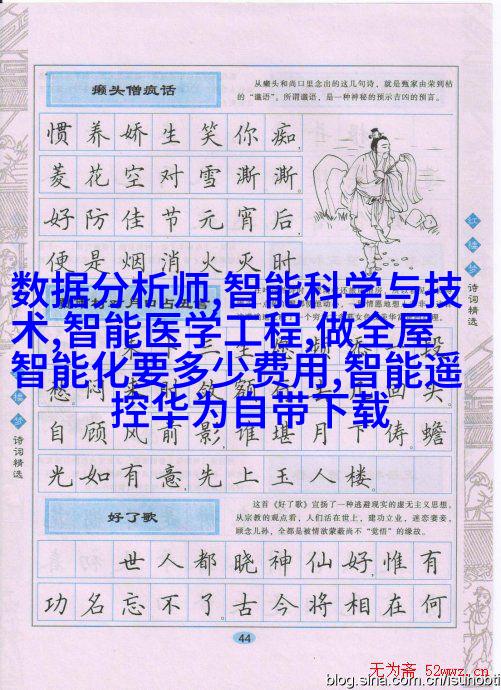 癞头僧疯话
从癞头和尚口里念出的这几句诗，就是甄家由荣到枯
的“谶语”。所谓谶语，是一种神秘的预示吉凶的预言。
惯养娇生笑你痴，
菱花空对雪澌澌。
好防佳节元宵后，
便是烟消火灭时
数据分析师,智能科学与技
术,智能医学工程,做全屋
智能化要多少费用,智能遥
控华为自带下载
自顾风前影，谁堪月下俦。蟾
光如有意，先上玉人楼。
好了歌
这首《好了歌》宣扬了一种逃避现实的虚无主义思想。
从宗教的观点看，人们活在世上，建功立业，迷恋妻妾，
顾念儿孙，全都是被情欲蒙蔽尚不“觉悟”的缘故。
世人都晓神仙好，惟有
功名忘不了。古今将相在何
44
红楼梦
诗词精选
诗词精选
无为斋 52wwz.cn
blog.sina.com.cn/isunobti